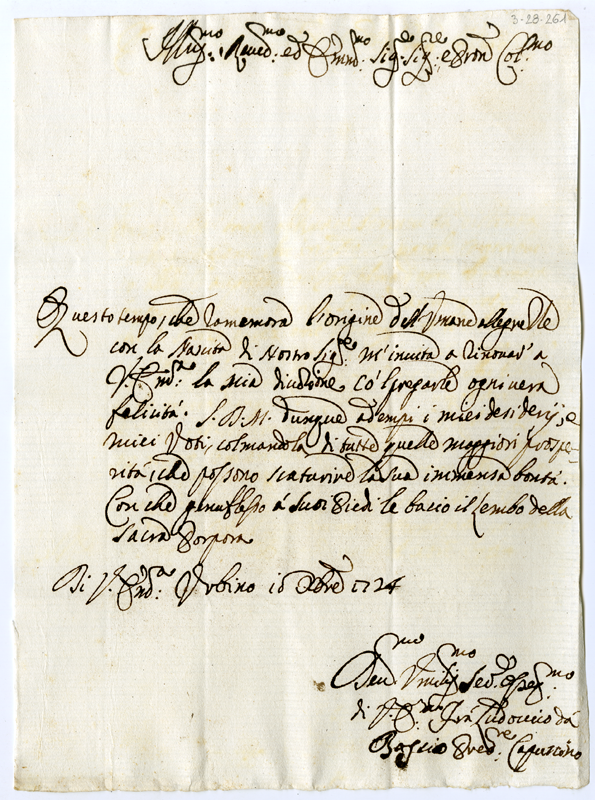 3-28-261
Ill.mo Reved.mo ed Emin.mo Sig.r Sig.re e Pron Col.mo
Questo tempo, che ramemora l'origine dell'Umane allegrezze
con la Nascita di Nostro Sig.re m'invita a rinovar' a
V. Em.a la mia divozione, co'l pregarle ogni vera
felicità. S. D. M. dunque adempi i miei desiderij, e
miei Voti, colmandola di tutte quelle maggiori prospe-
rità, che possono scaturire la sua immensa bontà.
Con che genuflesso á suoi Piedi le bacio il Lembo della
Sacra Porpora
Di V. Em.a Urbino 16 Xbre 1724
Umilis.mo Ser.e
di V. Em.a Fra Ludovico da
Pred.re Capuccino